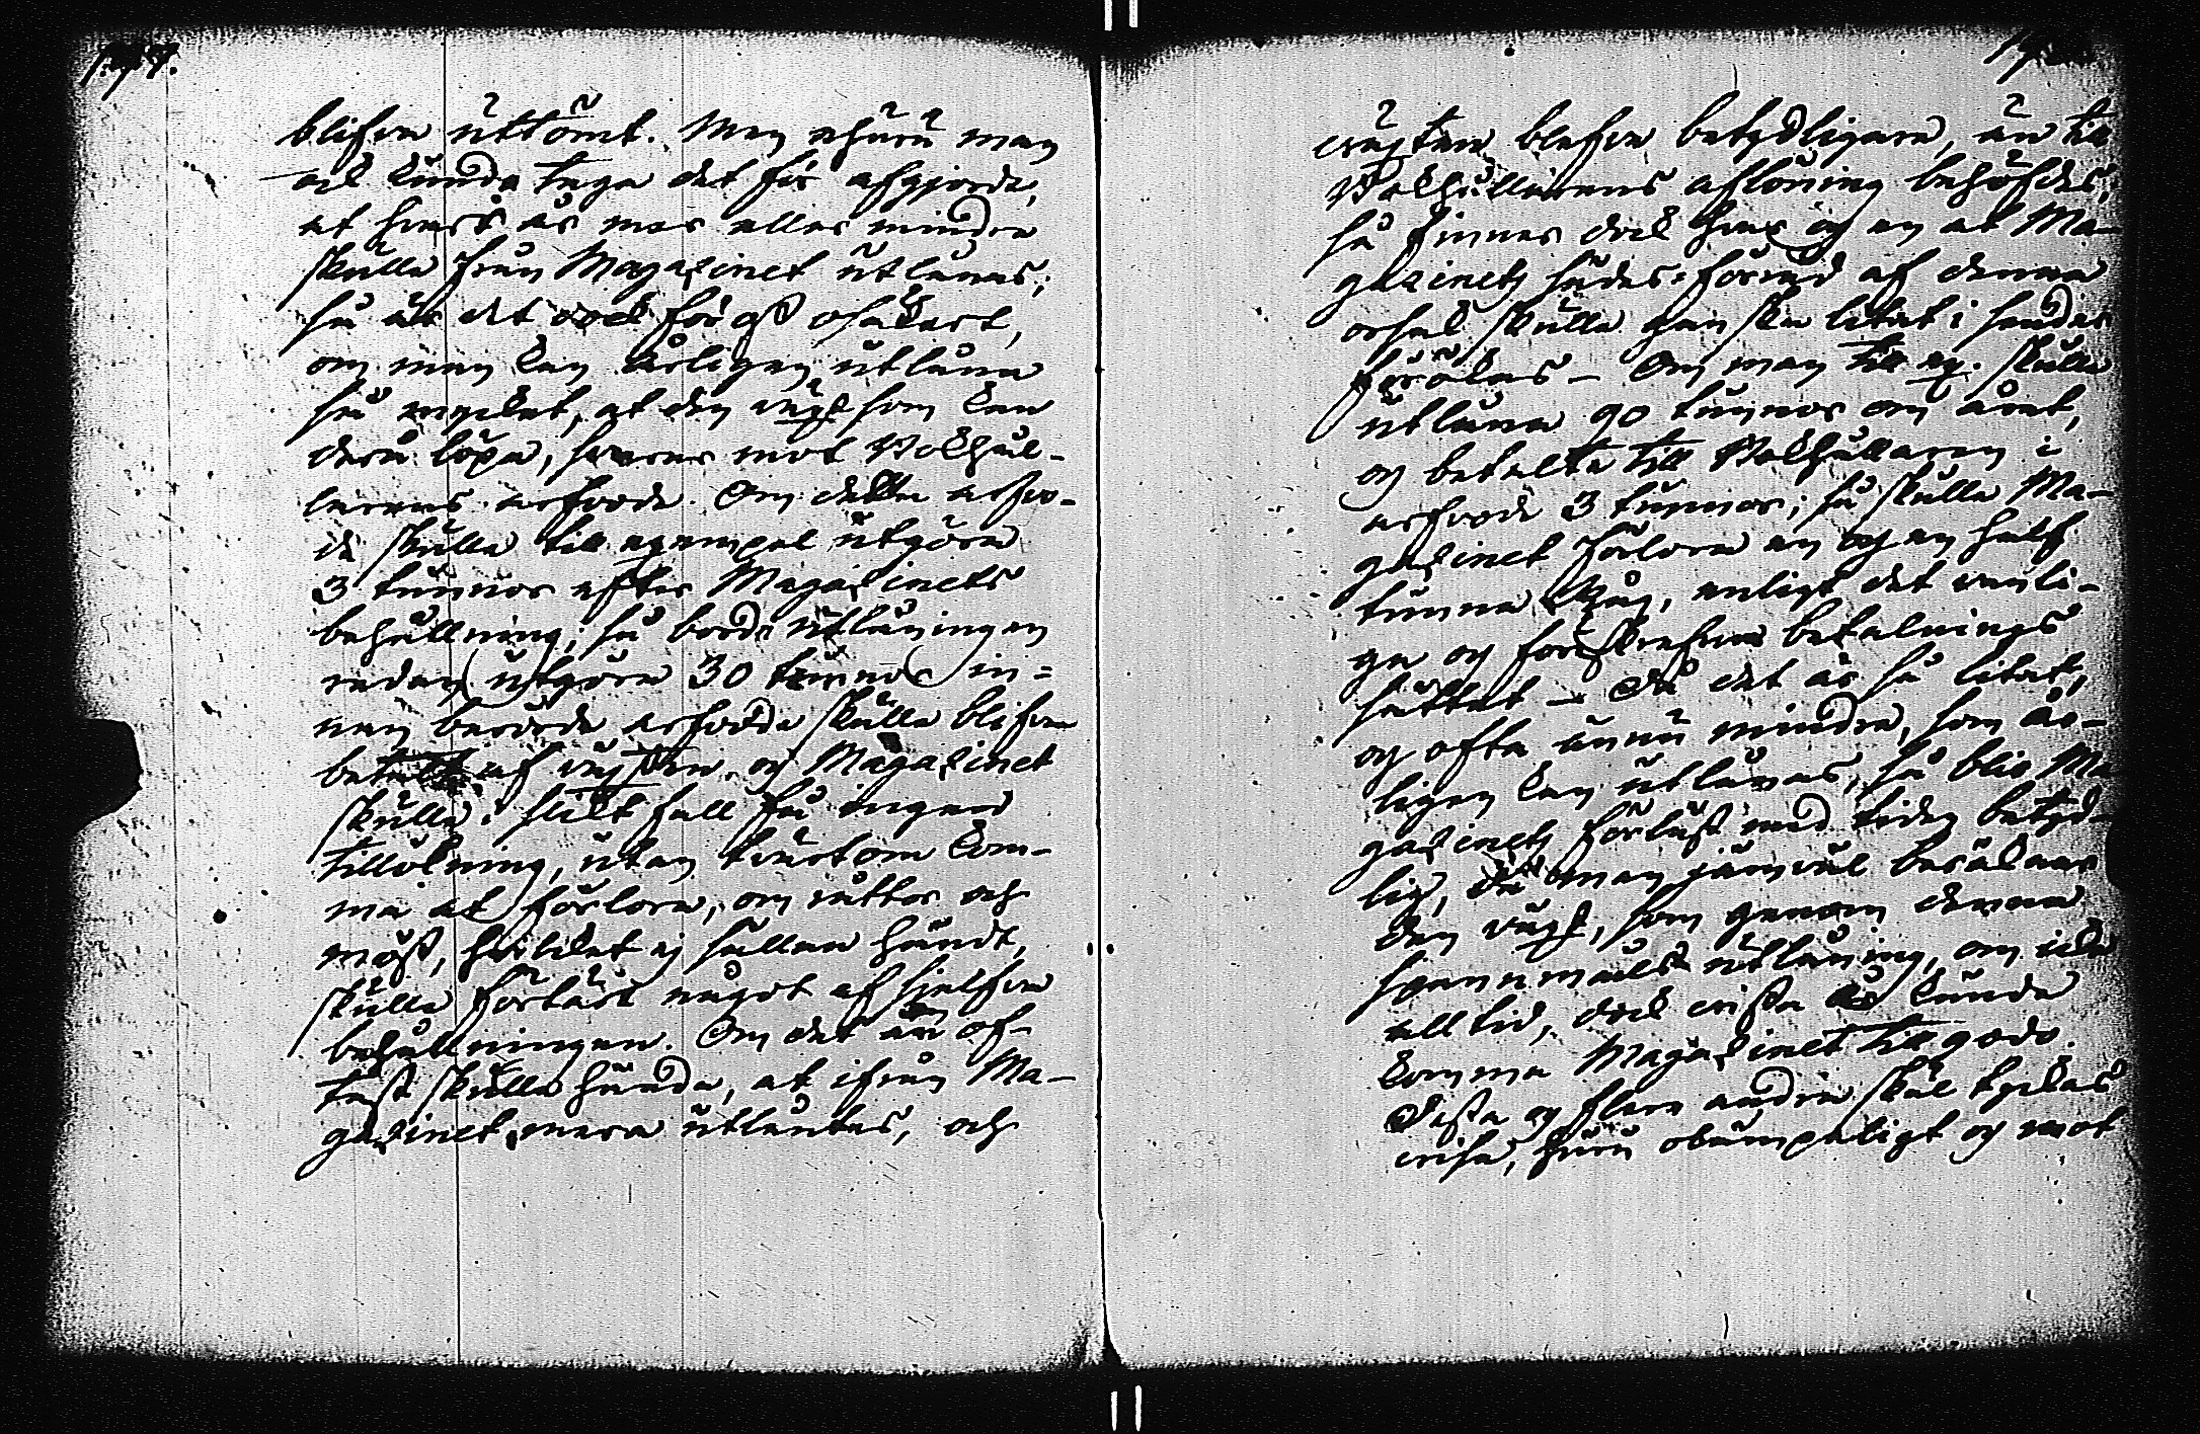 blifva uttömt. Men ehuru man
ock kunde taga det för afgjordt,
at hvart år mer eller mindre
skulle från Magazinet utlånas;
så är det dock för oss osäkert,
om man kan årligen utlåna
så mycket, at den växt som kan
derå löpa, svarar mot Bokhål-
larens arfvode. Om detta arfvo-
de skulle till exempel utgöra
3 tunnor efter Magazinets
behållning; så borde utlåningen
redan utgöra 30 tunnor in=
nan berörde arfvode skulle blifva
betalt af växten, och Magazinet
skulle i slikt fall få ingen
tillökning, utan tvärtom kom-
ma at förlora, om råttor och
möss, hvilket ej sällan händt,
skulle förtärt något af sjelfva
behållningen. Om det än of-
tast skulle hända, at ifrån Ma-
gazinet mera utlåntes, och
växten blefve betydligare, än till
Bokhållarens aflöning behöfdes;
så finner dock hvar och en at Ma-
gazinets sädes-förråd af denna
orsak skulle ganska litet i sender
förökas – Om man till ex. skulle
utlåna 90 tunnor om året,
och betalte till Bokhållaren i
arfvode 3 tunnor; så skulle Ma-
gazinet förlora en och en half
tunna Råg, enligt det vanli-
ga och föreskrefne betalnings
sättet – Då det är så litet,
och ofta ännu mindre, som år-
ligen kan utlånas, så blir Ma
gazinets förlust med tiden betyd-
lig, då man jämväl beräknar
den växt, som genom denna
spannmåls utlåning, om icke
alltid, dock vissa år kunde
komma Magazinet till godo.
Desse och flere andre skäl tyckas
visa, huru obilligt och mot